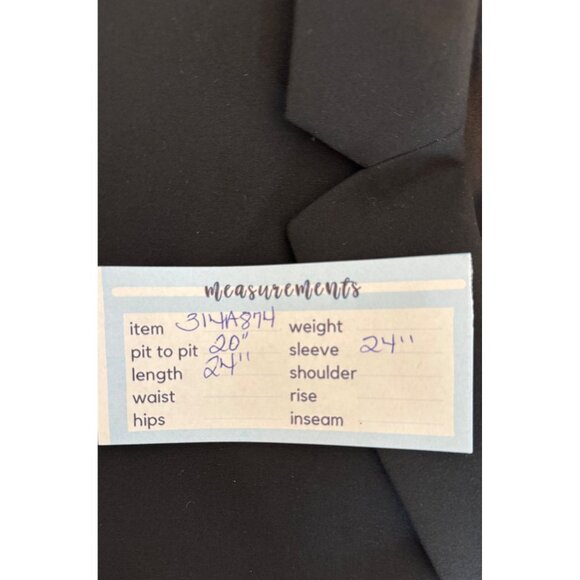 measurements
item 314A874
pit to pit 20"
length 24"
waist
hips
weight
sleeve 24"
shoulder
rise
inseam